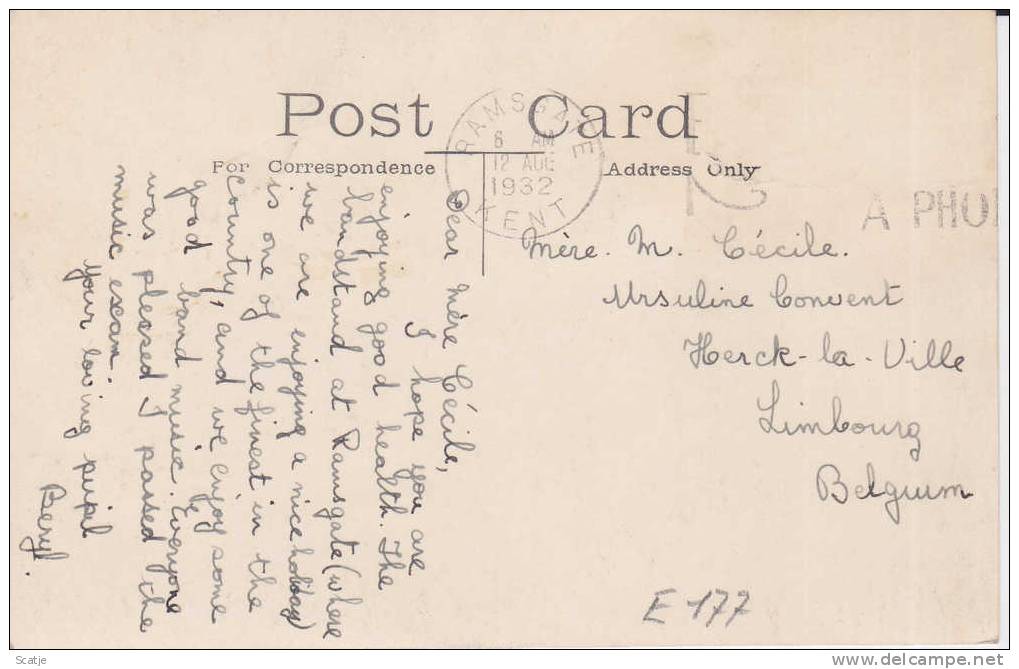 Post Card
For Correspondence
Address Only
RAMSGATE
6 AM
12 AUG
1932
KENT
A PHO
Dear Mère Cécile,
I hope you are
enjoying good health. The
bandstand at Ramsgate (where
we are enjoying a nice holiday)
is one of the finest in the
country, and we enjoy some
good band music. Everyone
was pleased I passed the
music exam.
Your loving pupil
Beryl.
Mère. M. Cécile.
Ursuline Convent
Herck-la-Ville
Limbourg
Belgium
E 177
Scatje
delcampe.net